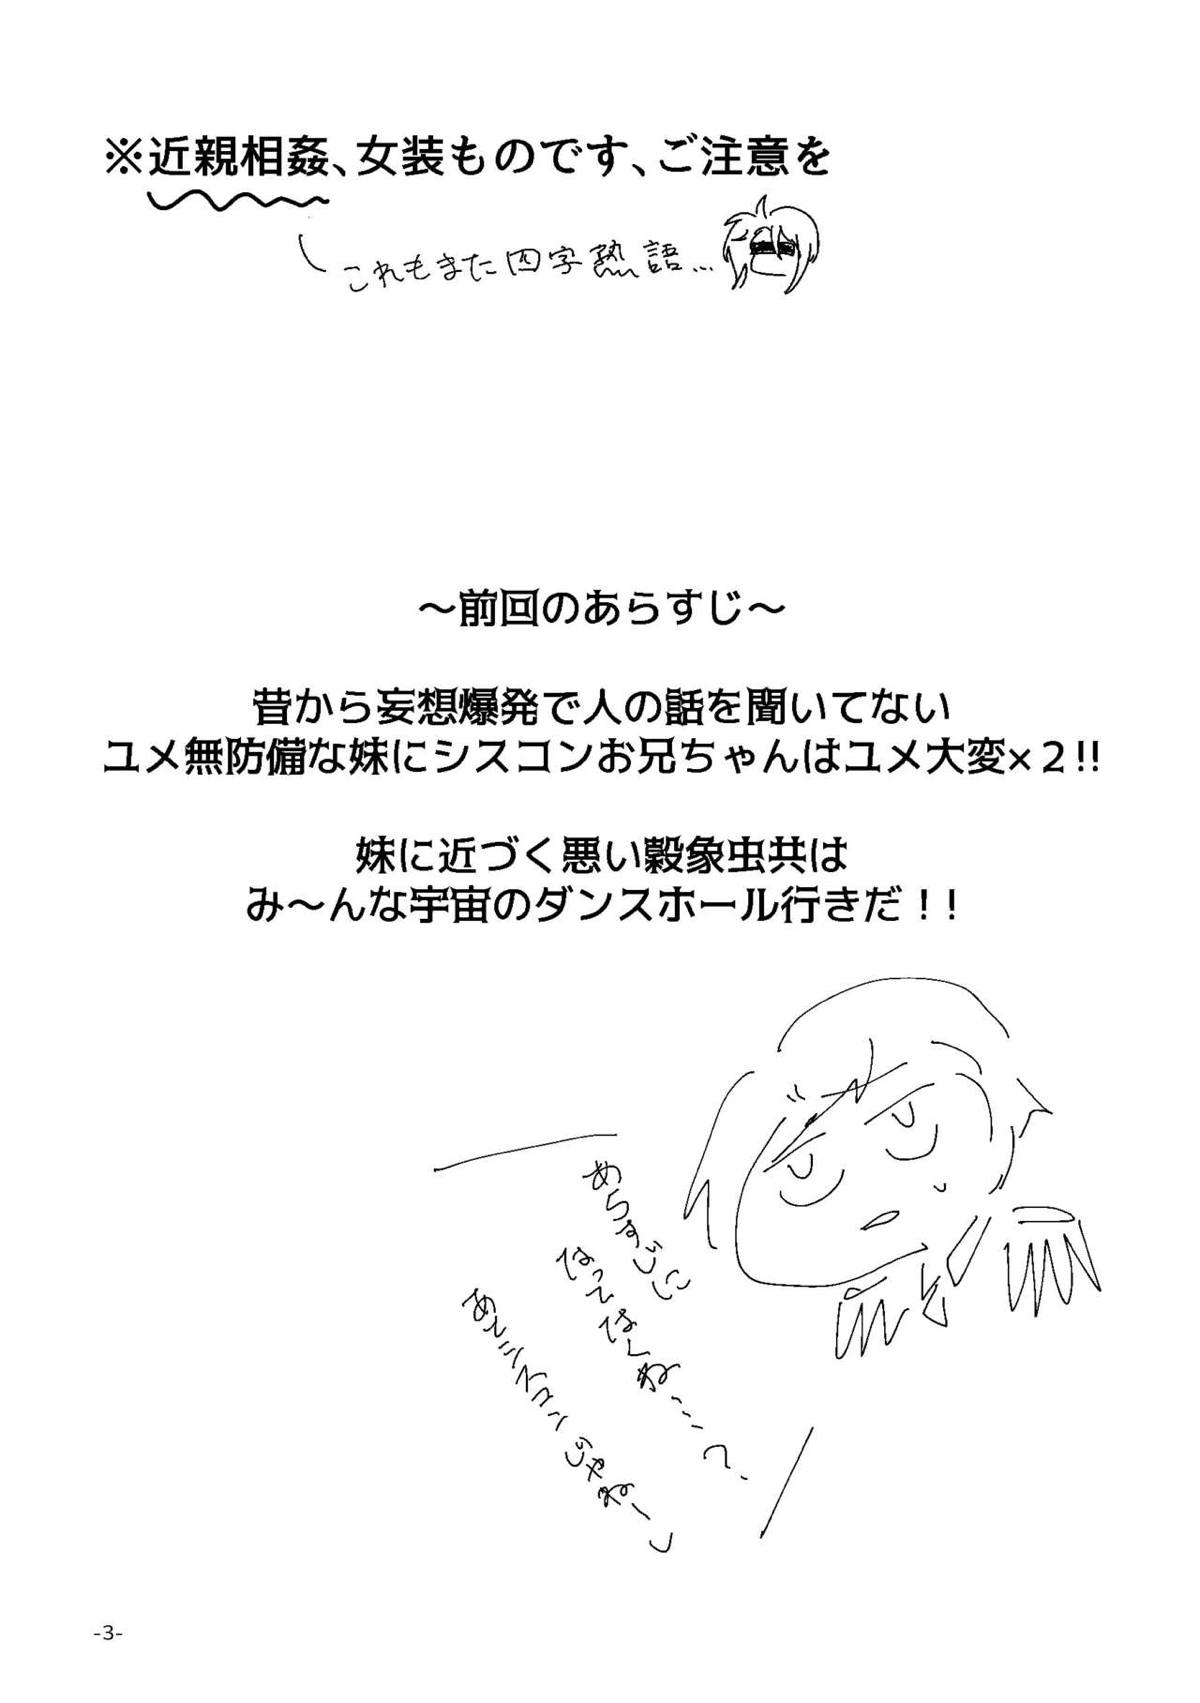 ※近親相姦、女装ものです、ご注意を
これもまた四字熟語…
～前回のあらすじ～
昔から妄想爆発で人の話を聞いてない
ユメ無防備な妹にシスコンお兄ちゃんはユメ大変×２!!
妹に近づく悪い穀象虫共は
み～んな宇宙のダンスホール行きだ！！
あらすじに
なってなくね……？
あとシスコンじゃねーし
-3-